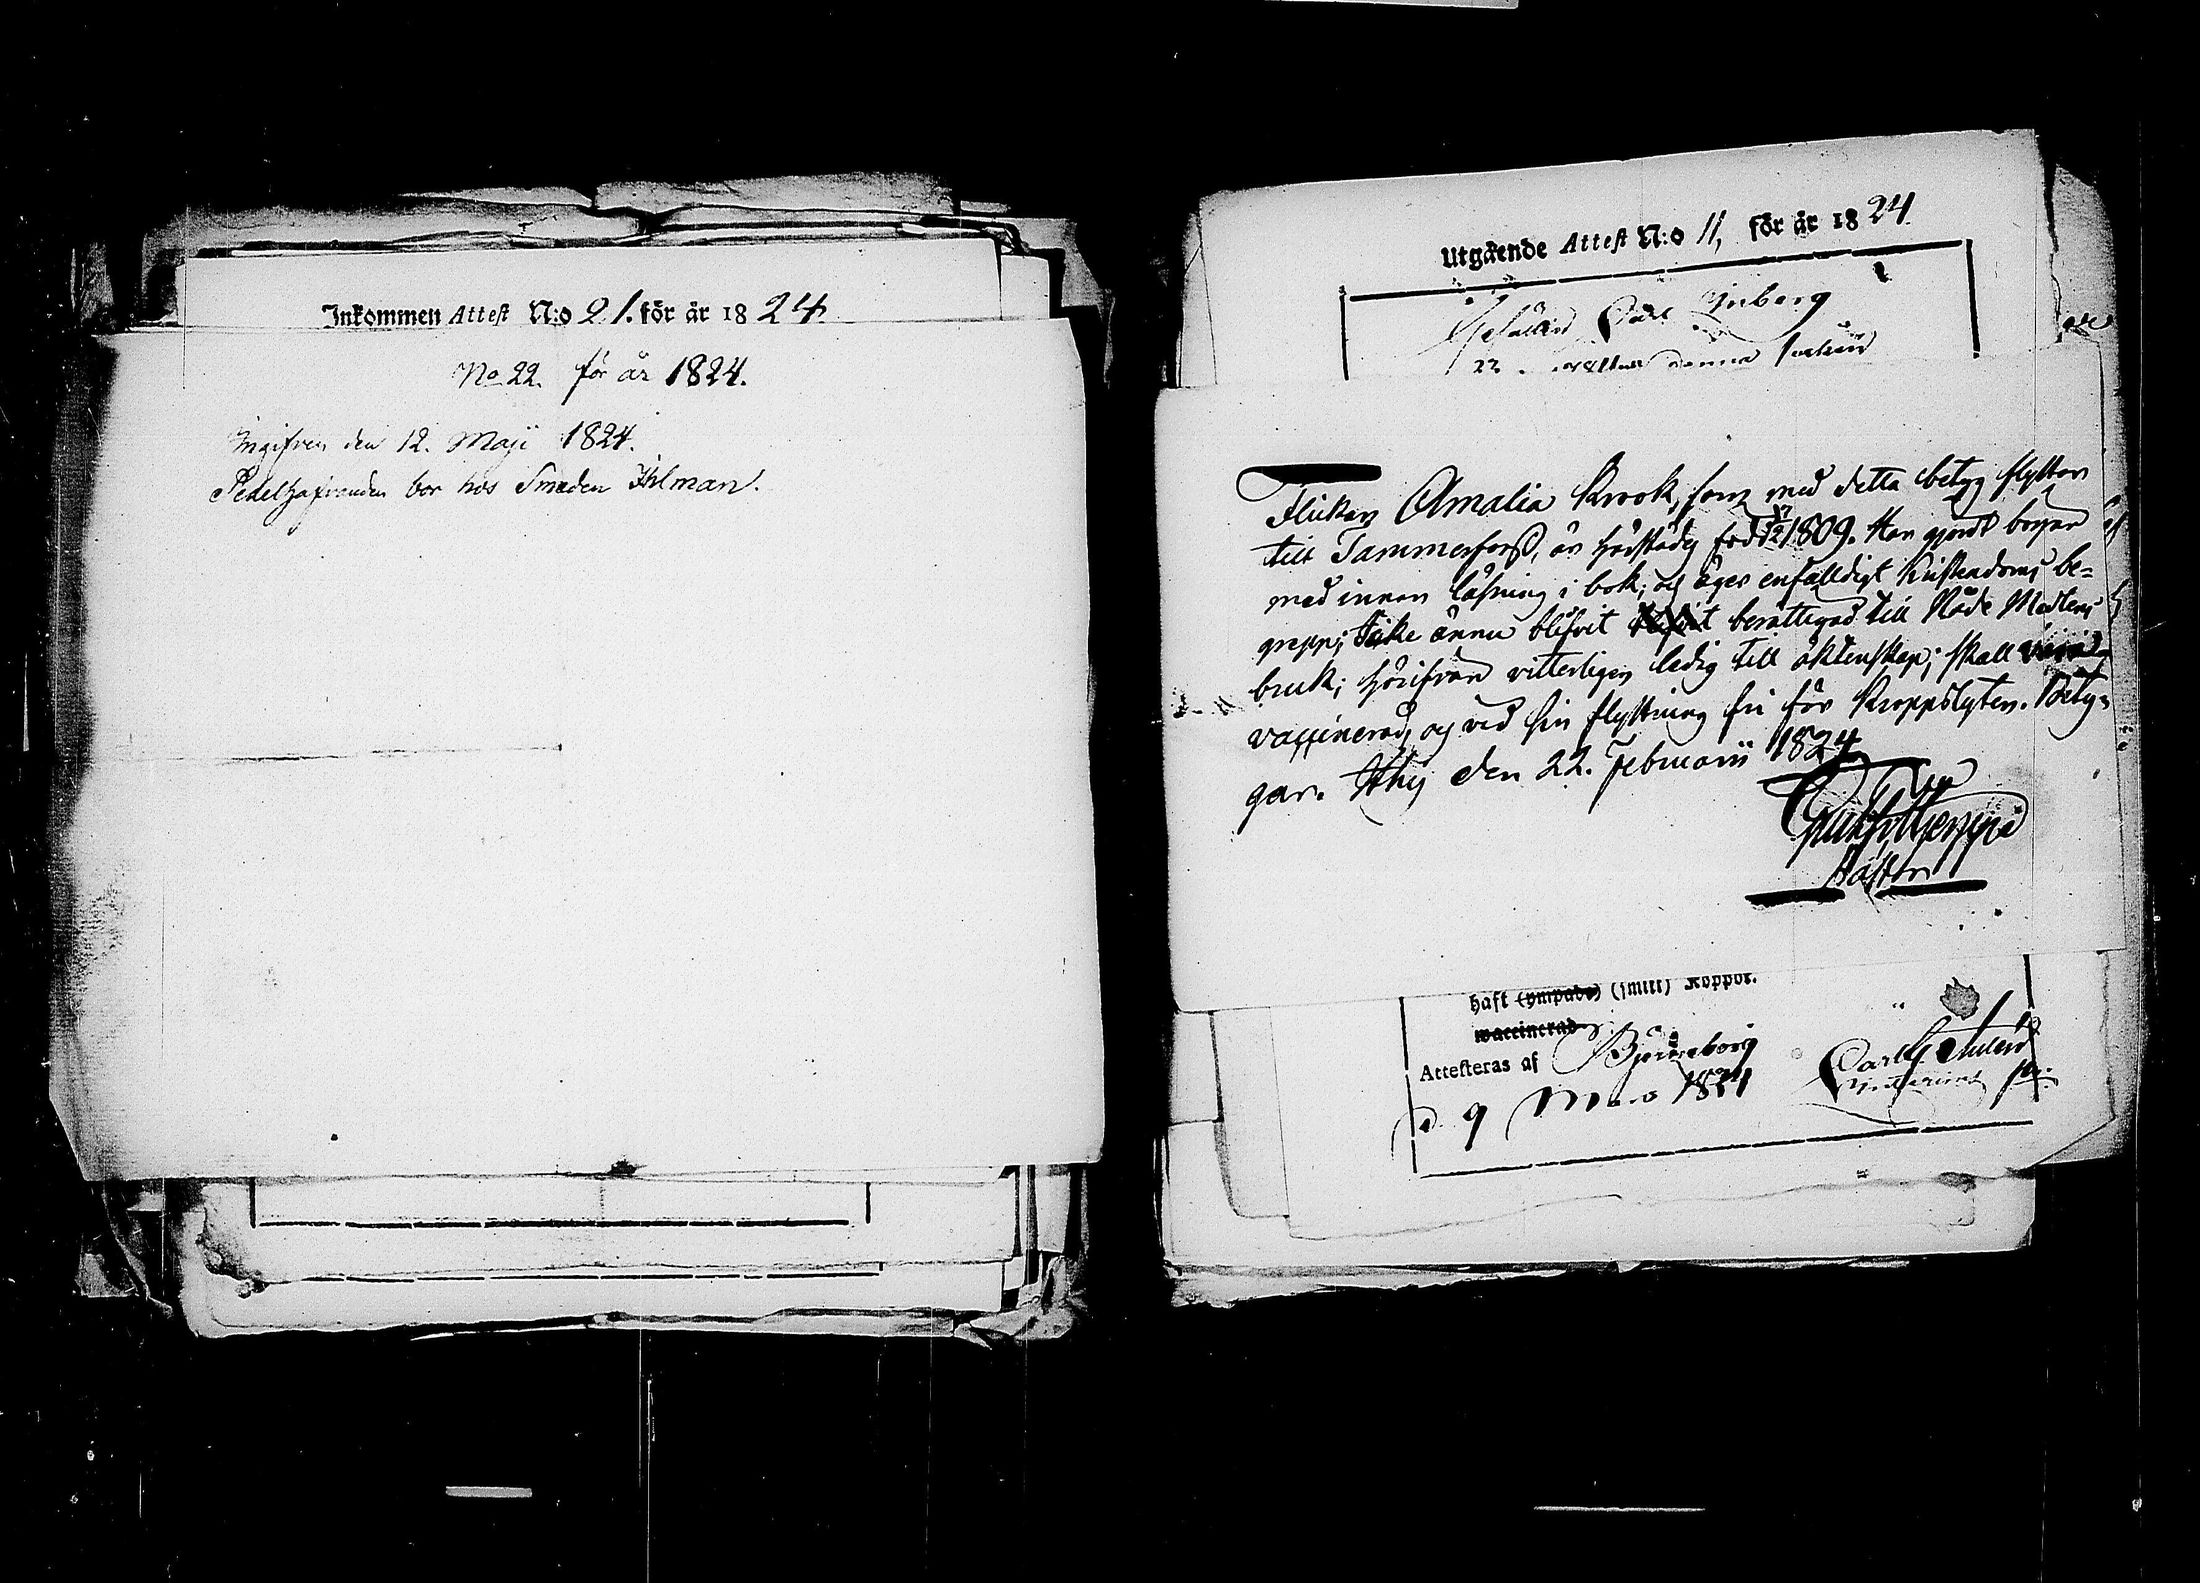 Inkommen Attest N:o 21. för år 1824.
No 22. för år 1824.
Ingifven den 12. Maji 1824.
bor hos Smeden Ihlman.
Utgående Attest N:o 11, för år 1824
Carl
denna
Flickan Amalia Krook, som med detta betyg flyttar
till Tammerfors, är härstädes född 1809. Har gjordt början
med innan läsning i bok; och äger enfalldigt Kristendoms be-
grepp; Icke ännu blifvit berättigad till Nåde Medlens
bruk; härifrån vitterligen ledig till äktenskap; skall vara
vaccinerad, och vid sin flyttning fri för kroppslyten. Bety-
gar. den 22. Februarii 1824
Pastor
haft (ympade) (smitt) Koppor.
vaccinerad
Attesteras af Björneborg
d. 9 1824 Carl